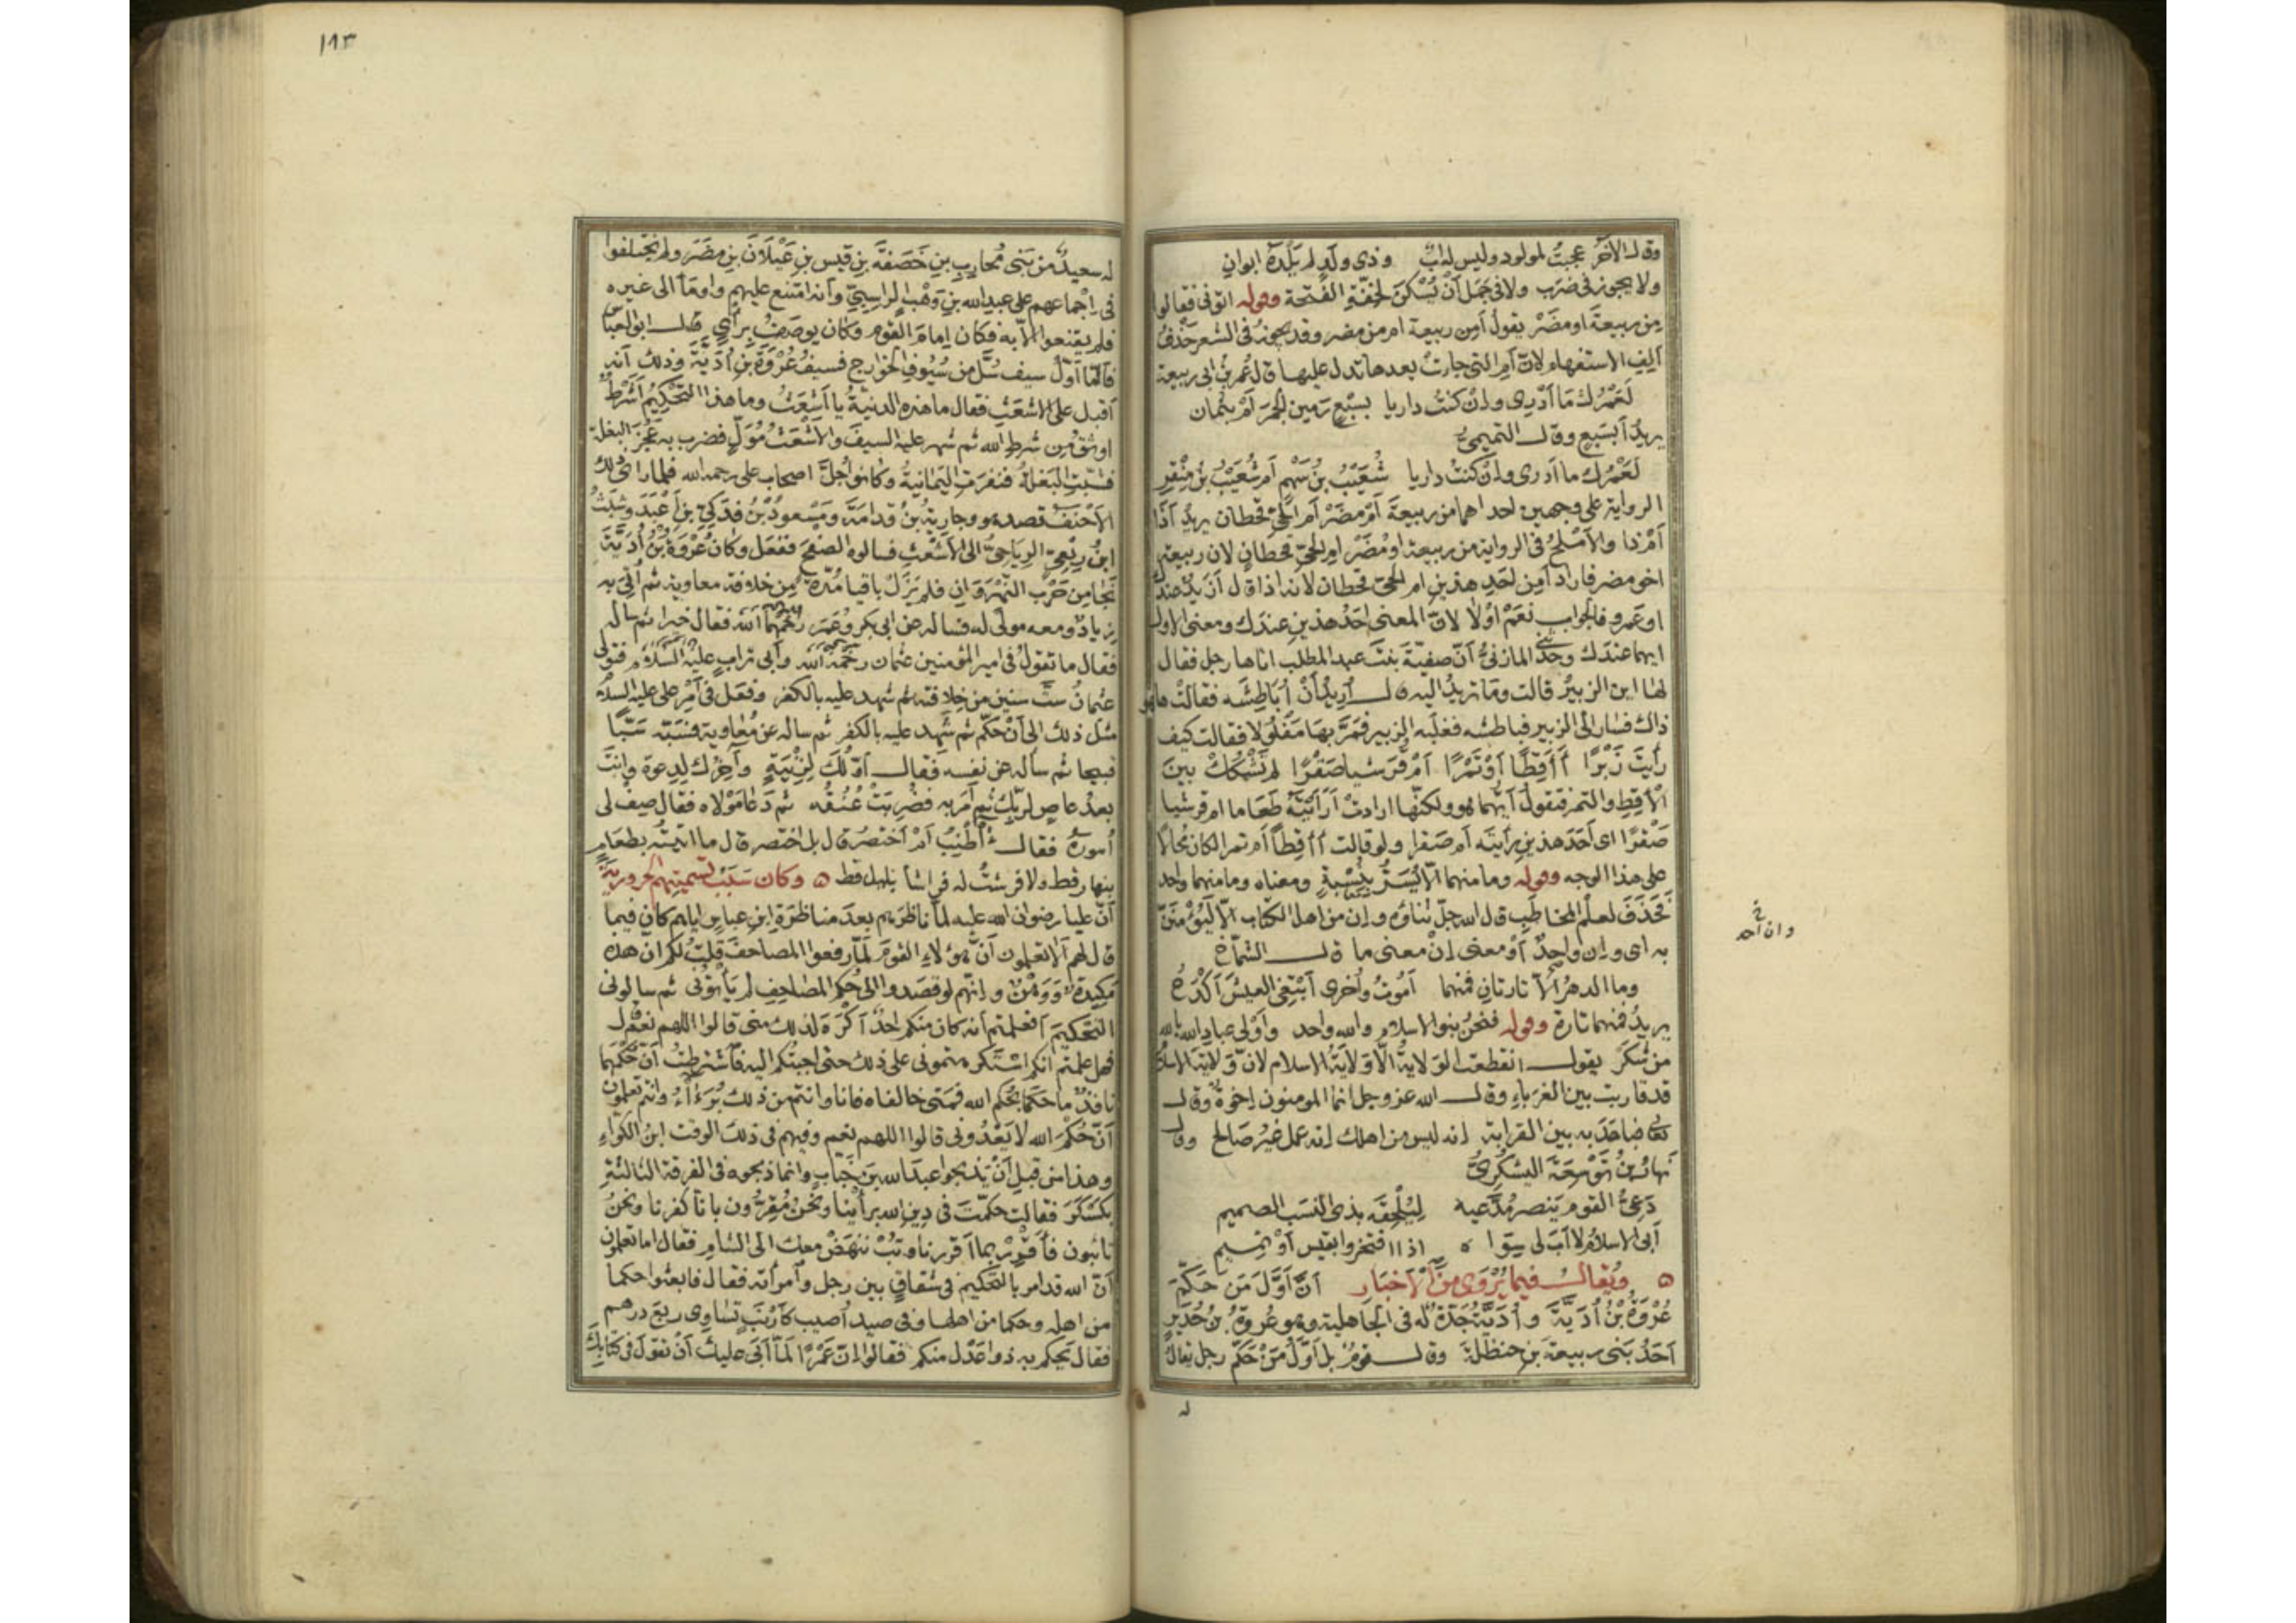 وقال الآخر عجبتُ لمولود وليس له ابٌ وذى ولَدٍ لم يَلْدَهُ ابوانِ
ولا يجوز فى ضرَب ولا فى جَمَل أنْ يُسْكنَ لخفّةِ الفَتحة وقوله التوفى فقالوا
مِن ربيعةَ او مضَرْ يقولُ أمِن ربيعة ام من مضر وقد يجوزُ فى الشعر حَذْفُ
اَلِفِ الاستفهام لانّ اَمِ التى جاءتْ بعدها تدل عليها قال عُمر بن ابى ربيعة
لَعَمْرُكَ مَا اَدْرِى وانْ كنتُ داريا بسَبْعٍ رَمين الجمرَ اَمْ بثمان
يريدُ اَبسَبعٍ وقال التميمىُّ
لَعَمْرُكَ ما ادرى وان كنتُ داريا شُعَيْبُ بنُ سَهْمٍ اَم شُعَيْبُ بنُ مِنْقَرِ
الرواية على وجهين احداهما من ربيعةَ اَمْ مضَرْ اَم الحىِّ قحطان يريدُ اَذا
اَمْ ذا والاَمْلحُ فى الرواية من ربيعة او مُضَرْ ام الحىّ قحطانٍ لان ربيعة
اخو مضر فاراد اَمِن اَحَدِ هذينِ ام الحىّ قحطان لانه اذا قال اَزَيدٌ عندك
او عَمرو فالجواب نعَمْ اوْ لا لانّ المعنى اَحَدُ هذينِ عندَك ومعنى الاول
ايهما عندَك وحَدّثنى المازنىُّ اَنّ صفيّةَ بنتَ عبد المطلب اتاها رجل فقال
لها اين الزبيرُ قالت وما تريدُ اليه قال اُريدُ اَنْ اُبَاطِشَه فقالتْ ها هو
ذاك فسَار الى الزبير فباطشه فغلَبه الزبير فمَرَّ بهَا مَفلُولا فقالت كيف
رأيتَ زَبْرًا أَاَقِطًا اَوْ تَمْرًا اَمْ قرَشيا صَقْرًا لم تَشكُكْ بينَ
الاَقِطِ والتمر فتقولَ اَيّهما هو ولكنّها ارادتْ اَرَاَيْتَهُ طعَاما ام قرشيا
صَقْرًا اى اَحَدَ هذينِ رَايتَه اَم صَقرا ولو قالت أاَقِطًا اَم تمرا لكان مُحالًا
على هذا الوجه وقوله وما منهما الّا يُسَرُّ بنِسْبةٍ ومعناه وما منهما واحد
فحَذَفَ لعلمِ المخاطَبِ قال الله جلّ ثناؤه وان من اهل الكتاب الّا ليُؤْمنَنّ
به اى وان واحِدٌ اَوْ معنى اِنْ معنى ما قال الشمّاخ
وان احد
وما الدهرُ الّا تارتانِ فمنهما اَموتُ واُخرى اَبتغى العيشَ اَكْدَحُ
يريدُ فمنهما تارة وقوله فنحنُ بنو الاسلام والله واحد واَوْلى عبادِ الله بالله
من شكَرَ يقول انقطعت الوَلايةُ الّا وَلايَةُ الاسلام لانّ وَلايَةَ الاسلام
قد قاربت بين الغرَباءِ وقال الله عز وجل انما المومنون اِخوةٌ وقال
تعالى فباعَدَ به بين القرابة اِنه ليس من اهلك اِنه عمل غيرُ صَالح وقال
نَهارُ بنُ تَوْسِعَةَ اليشكُرىُّ
دَعِىُّ القوم يَنصر مُدَّعيه لِيُلْحِقَه بذى النسَب الصميم
اَبى الاسلامُ لا اَبَ لى سِوَاه اذا افتخروا بقيس اَوْ تميمِ
ويُقالُ فيما يُرْوَى من الاخبَارِ انّ اَوَّلَ مَن حَكّمَ
عُرْوَةُ بْنُ اُدَيَّةَ واُدَيَّةُ جَدَّةٌ له فى الجاهلية وهو عُروةُ بنُ حُدَيرٍ
اَحَدُ بَنى ربيعةَ بنِ حنظلةَ وقال قومٌ بل اَوّلُ مَنْ حَكّم رجل يقالُ
له
١٩٣
له سعيدٌ من بَنى مُحاربِ بنِ خَصَفةَ بنِ قيسِ بنِ عَيْلَانَ بنِ مضَرَ ولم يختلفوا
فى اِجْماعهم على عبد الله بنِ وَهْبٍ الراسِبىِّ وانه امتنع عليهم واومَأَ الى غيره
فلم يقنعوا الّا به فكان اِمامَ القوم وكان يوصَفُ برَأىٍ قال ابو العباس
فامّا اَوّلُ سيف سُلَّ من سُيُوفِ الخوارج فسيفُ عُرْوَةَ بنِ اُدَيَّةَ وذلك اَنه
اَقبل على الاشعَثِ فقال ما هذه الدنيّةُ يا اَشعَثُ وما هذا التحْكِيمُ اَشَرْطٌ
اوثقُ مِن شرطِ الله ثم شهر عليه السيفَ والاشْعَثُ مُوَلٍّ فضرب به عَجُزَ البغلة
فشبّتِ البَغلةُ فنفرَتِ اليَمانيةُ وكانوا جُلَّ اصحاب على رحمه الله فلما راى ذلك
الاَحْنفُ قصد هو وجاريةُ بنُ قدامَةَ ومَسْعودُ بْنُ فدَكِىِّ بنِ اَعْبَدَ وشبَثُ
ابنُ رِبْعىٍّ الرِيَاحِىُّ الى الاشعَثِ فسالوه الصفحَ ففعَل وكان عُرْوَةُ بْنُ اُدَيَّةَ
نَجَا من حَرْبِ النهْرَوَانِ فلم يَزَلْ باقيا مُدّةً مِن خلافة معاويةَ ثم اُتِىَ به
زيادٌ ومعه مولًى له فساله عن ابى بكر وعُمَر رَحمَهُمَا الله فقال خيرا ثم ساله
فقال ما تقولُ فى امير المؤمنين عثمان رحمَهُ الله وابى ترابٍ عليه السلامُ فتولى
عثمانُ ستَّ سنين من خِلافته ثم شهد عليه بالكفر وفعَل فى اَمْرِ على عليه السلام
مثلَ ذلك الى اَنْ حكّم ثم شَهِد عليه بالكفر ثم ساله عن مُعَاوية فسَبّه سَبّا
قبيحا ثم سأله عن نفسه فقال اوّلُكَ لِزِنْيَةٍ وآخِرُك لِدِعوةٍ وانتَ
بعدُ عاصٍ لربّك ثم اَمَر به فضُرِبَتْ عُنُقُه ثم دَعَا مَوْلاه فقال صِفْ لى
اُمورَهُ فقال أَاُطْنِبُ اَمْ اَختصرُ قال بل اختصر قال ما اتيتُه بطعَامٍ
بنهار قط ولا فرشتُ له فراشا بليل قط وكان سَبَبُ تسْمِيَتِهم الحَروريّةَ
اَنّ عليا رضوان الله عليه لمّا ناظرَهم بعدَ مناظرَةِ ابنِ عباس اياهم كان فيما
قال لهم اَلا تعلمون اَنّ هؤلاءِ القومَ لمّا رفعوا المصاحفَ قلتُ لكم انّ هذه
مَكيدةٌ ووَهْنٌ وانّهم لو قصَدوا الى حُكمِ المصَاحِفِ لم يَأتونى ثم سالونى
التحكيمَ اَفعَلِمتم اَنه كان منكم احَدٌ اَكْرَهَ لذلك منى قالوا اللهم نعَمْ قال
فهل علمتم انكم استَكرهتمونى على ذلك حتى اجبتُكم اليه فاشترطتُ اَنّ حُكمَهما
نافذٌ ما حَكمَا بحُكم الله فمتى خالفاه فانا وانتم من ذلك بُرَءَآءُ وانتم تعلمون
اَنّ حُكْمَ الله لا يَعْدُونى قالوا اللهم نعم وفيهم فى ذلك الوقت ابنُ الكوّاءِ
وهذا من قبلِ اَنْ يَذبحوا عبدَ الله بنَ خَبّابٍ وانما ذبحوه فى الفرقة الثالثةِ
بكَسْكَرَ فقالت حكّمتَ فى دِينِ الله برأينا ونحْنُ مُقِرُّون بانا كفرنا ونحنُ
تائبون فاَقْرِرْ بما اَقررنا وتُبْ نَنهَضْ معك الى الشام فقال اما تعلمون
اَنّ الله قد امر بالتحكيم فى شقاقٍ بين رجل وامرأته فقال فابعثوا حكما
من اهله وحكما من اهلها وفى صيدٍ اُصيب كاَرْنبٍ تساوى ربعَ درهم
فقال يحكم به ذوا عَدْل منكم فقالوا انّ عَمْرًا لمّا اَبَى عليك اَنْ تقولَ فى كتابك